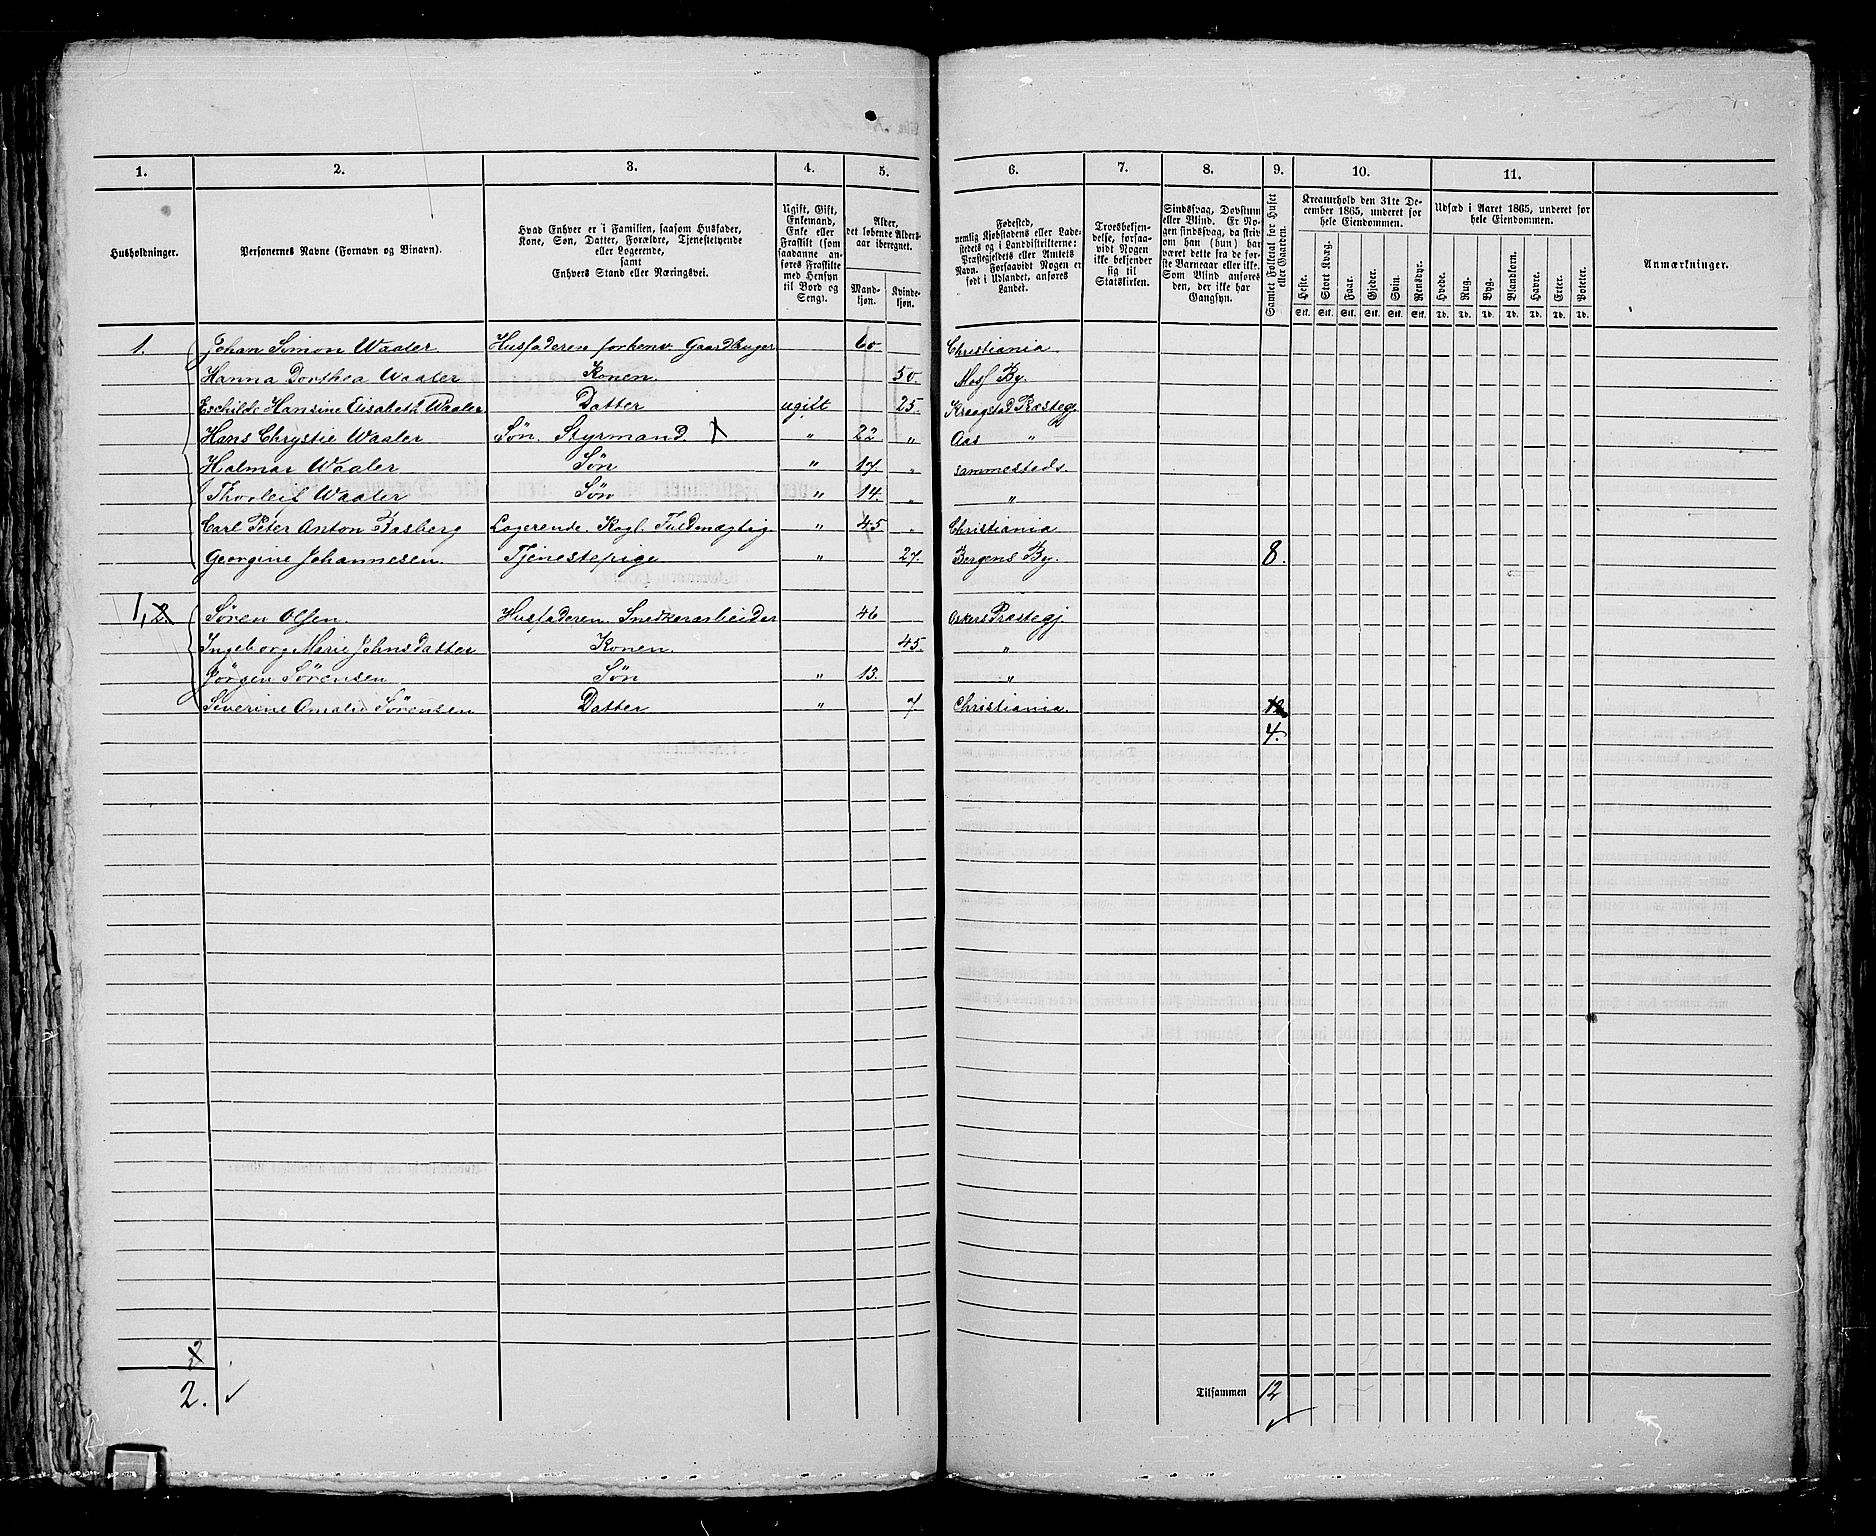 1. 2. 3. 4. 5. 6. 7. 8. 9. 10. 11.
Husholdninger.
Personernes Navne (Fornavn og Binavn).
Hvad Enhver er i Familien, saasom Husfader,
Kone, Søn, Datter, Forældre, Tjenestetyende
eller Logerende,
samt
Enhvers Stand eller Næringsvei.
Ugift, Gift,
Enkemand,
Enke eller
Fraskilt (som
saadanne an-
føres Fraskilte
med Hensyn
til Bord og
Seng).
Alder,
det løbende Alders-
aar iberegnet.
Mand-
kjøn.
Kvinde-
kjøn.
Fødested,
nemlig Kjøbstadens eller Lade-
stedets og i Landdistrikterne:
Præstegjeldets eller Amtets
Navn. Forsaavidt Nogen er
født i Udlandet, anføres
Landet.
Troesbekjen-
delse, forsaa-
vidt Nogen
ikke bekjender
sig til
Statskirken.
Sindssvag, Døvstum
eller Blind. Er No-
gen sindssvag, da skriv
om han (hun) har
været dette fra de før-
ste Barneaar eller ikke.
Som Blind anføres
den, der ikke har
Gangsyn.
Samlet Folketal for Huset
eller Gaarden.
Kreaturhold den 31te De-
cember 1865, underet for
hele Eiendommen.
Heste. Stort Kvæg. Faar. Gjeder. Svin. Rensdyr.
Stk. Stk. Stk. Stk. Stk. Stk.
Udsæd i Aaret 1865, underet for
hele Eiendommen.
Hvede. Rug. Byg. Blandkorn. Havre. Erter. Poteter.
Td. Td. Td. Td. Td. Td. Td.
Anmærkninger.
1. Johan Simon Waaler Husfaderen forhenv Gaardbruger 60 Christiania
Hanna Dorthea Waaler Konen. 50. Moss By.
Hansine Elisabeth Waaler Datter ugift 25. Kraagstad Præstegj
Hans Chrystie Waaler Søn. Styrmand. X " 22 " Aas "
Halmar Waaler Søn " 17. " sammesteds.
Thorleif Waaler Søn " 14. " "
Carl Peter Anton Logerende. Kogl. Fuldmægtig " 45 " Christiania
Georgine Johannesen. Tjenestepige " 27. Bergens By. 8.
1, 2 Søren Olsen. Husfaderen. Snedkerarbeider 46 Askers Præstegj.
Ingeborg Marie Johnsdatter Konen. 45. "
Jørgen Sørensen Søn " 13. "
Severine Amalie Sørensen Datter " 7 Christiania. 12
4.
2
2. Tilsammen 12